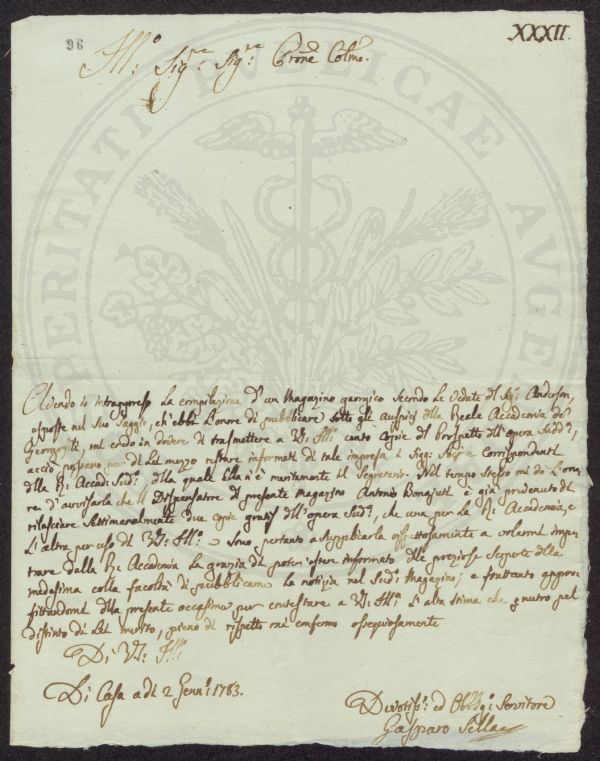 XXXII.
96
Ill.º Sig.re Sig.re Prone Colmo.
Avendo io intrappreso la compilazione d'un Magazino georgico secondo le vedute del Sig.r Anderson,
esposte nel suo Saggio, ch'ebbi l'onore di pubblicare sotto gli auspicj della Reale Accademia de'
Georgofili, mi credo in dovere di trasmettere a V.S. Ill.ma cento Copie del Prospetto dell'opera Sudd.a,
acciò possano per di Lei mezzo restare informati di tale impresa i Sigg.i Socj e Corrispondenti
della R.l Accad.a Sud.a, della quale Ella n'è meritamente il Segretario. Nel tempo stesso mi dò l'ono-
re d'avvisarla che il Dispensatore del presente magazino Antonio Bonajuti è già prevenuto di
rilasciare Settimanalmente due copie gratis dell'opera Sud.a, che una per la R.l Accademia, e
l'altra per uso di V.S. Ill.ma. Sono pertanto a supplicarla ossequiosamente a volermi impe-
trare dalla R.l Accademia la grazia di poter esser informato delle preziose scoperte della
medesima colla facoltà di pubblicarne la notizia nel Sud.o Magazino; e frattanto appro-
fittandomi della presente occasione per contestare a V.S. Ill.ma l'alta stima che nutro pel
distinto di Lei merito, pieno di rispetto mi confermo ossequiosamente
Di V.S. Ill.ma
Di Casa adì 2 Genn.o 1783.
Devotiss.o ed Obblig.o Servitore
Gasparo Sella
PERITATI PUBLICAE AUGE